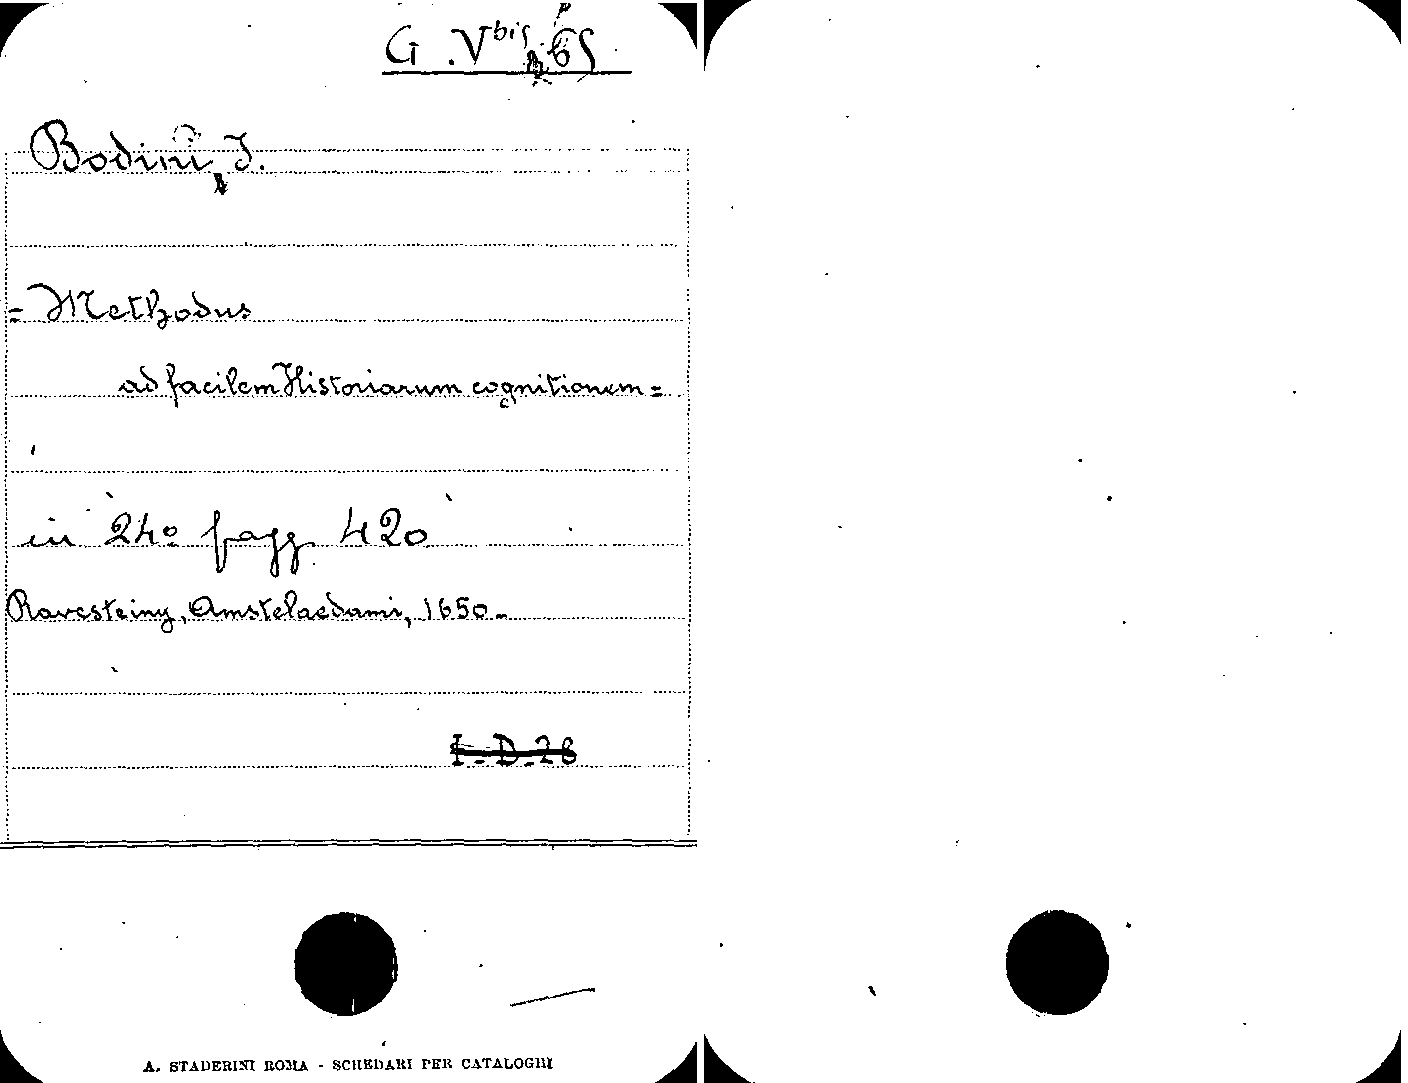 G .V bis 65
Bodini, J.
= Methodus
ad facilem Historiarum cognitionem =
in 24º pagg. 420
Ravesteiny, Amstelaedami, 1650 -
I-D-28
A. STADERINI ROMA - SCHEDARI PER CATALOGHI